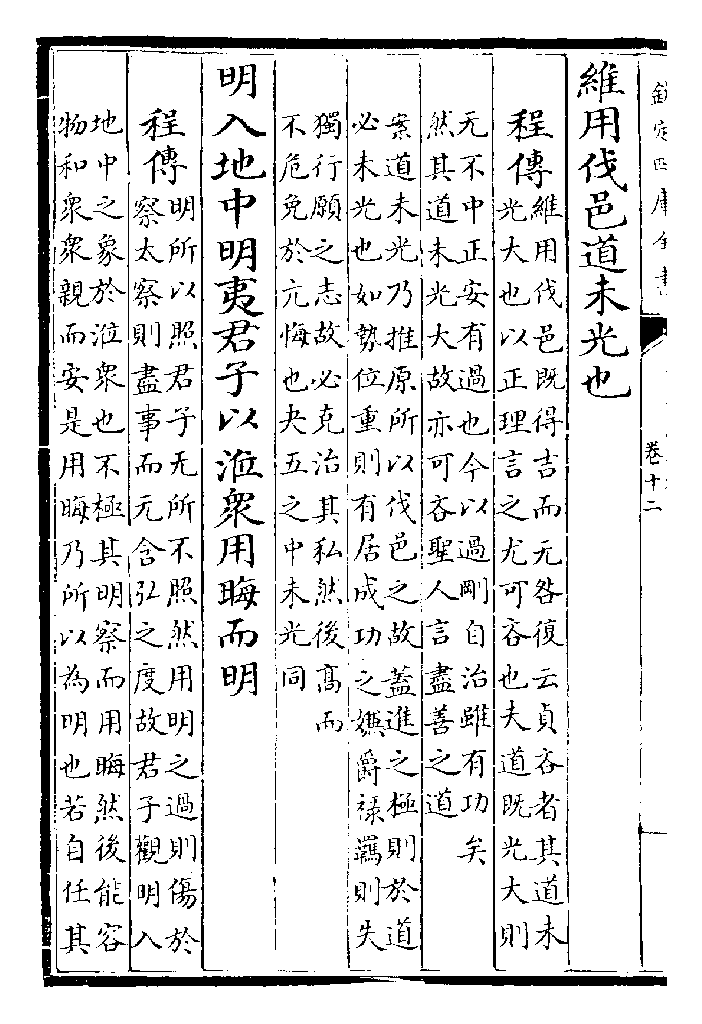 欽定四庫全書
卷十二
維用伐邑道未光也
程傳維用伐邑既得吉而无咎復云貞吝者其道未
光大也以正理言之尤可吝也夫道既光大則
无不中正安有過也今以過剛自治雖有功矣
然其道未光大故亦可吝聖人言盡善之道
案道未光乃推原所以伐邑之故蓋進之極則於道
必未光也如勢位重則有居成功之嫌爵祿羈則失
獨行願之志故必克治其私然後高而
不危免於亢悔也夬五之中未光同
明入地中明夷君子以涖衆用晦而明
程傳明所以照君子无所不照然用明之過則傷於
察太察則盡事而无含弘之度故君子觀明入
地中之象於涖衆也不極其明察而用晦然後能容
物和衆衆親而安是用晦乃所以為明也若自任其